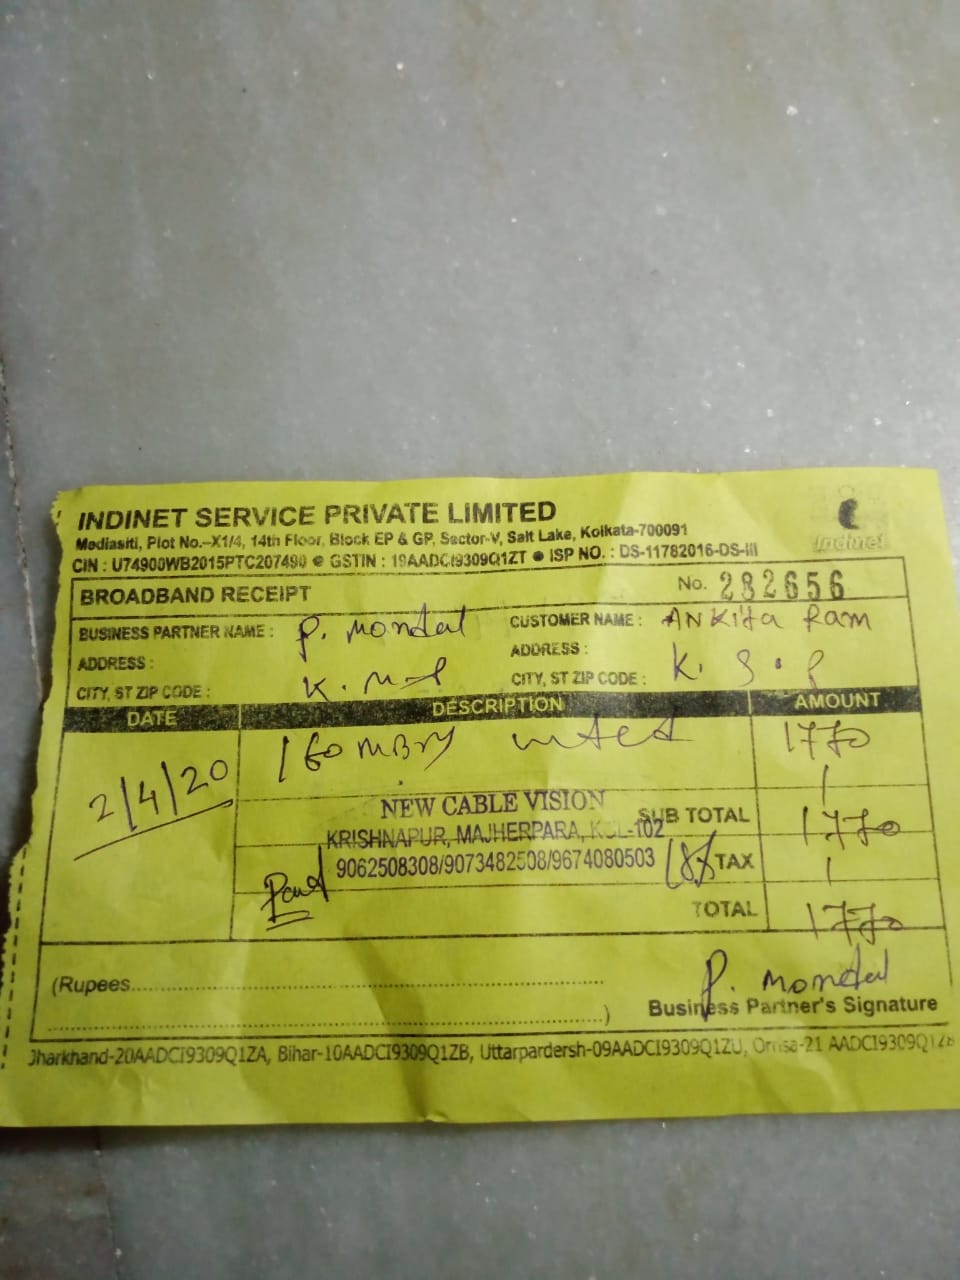 INDINET SERVICE PRIVATE LIMITED
Indinet
Mediasiti, Plot No.-X1/4, 14th Floor, Block EP & GP, Sector-V, Salt Lake, Kolkata-700091
CIN : U74900WB2015PTC207490 ● GSTIN : 19AADCI9309Q1ZT ● ISP NO. : DS-11782016-DS-III
BROADBAND RECEIPT No. 282656
BUSINESS PARTNER NAME : P. Mondal CUSTOMER NAME : ANKita Ram
ADDRESS : ADDRESS :
CITY, ST ZIP CODE : CITY, ST ZIP CODE : K.
DATE DESCRIPTION AMOUNT
2/4/20 1770
NEW CABLE VISION
SUB TOTAL 1770
KRISHNAPUR, MAJHERPARA, KOL-102
9062508308/9073482508/9674080503 18% TAX
Paid
TOTAL 1770
(Rupees..............................
P. Mondal
....................................) Business Partner's Signature
Jharkhand-20AADCI9309Q1ZA, Bihar-10AADCI9309Q1ZB, Uttarpardersh-09AADCI9309Q1ZU, Orissa-21 AADCI9309Q1Z8